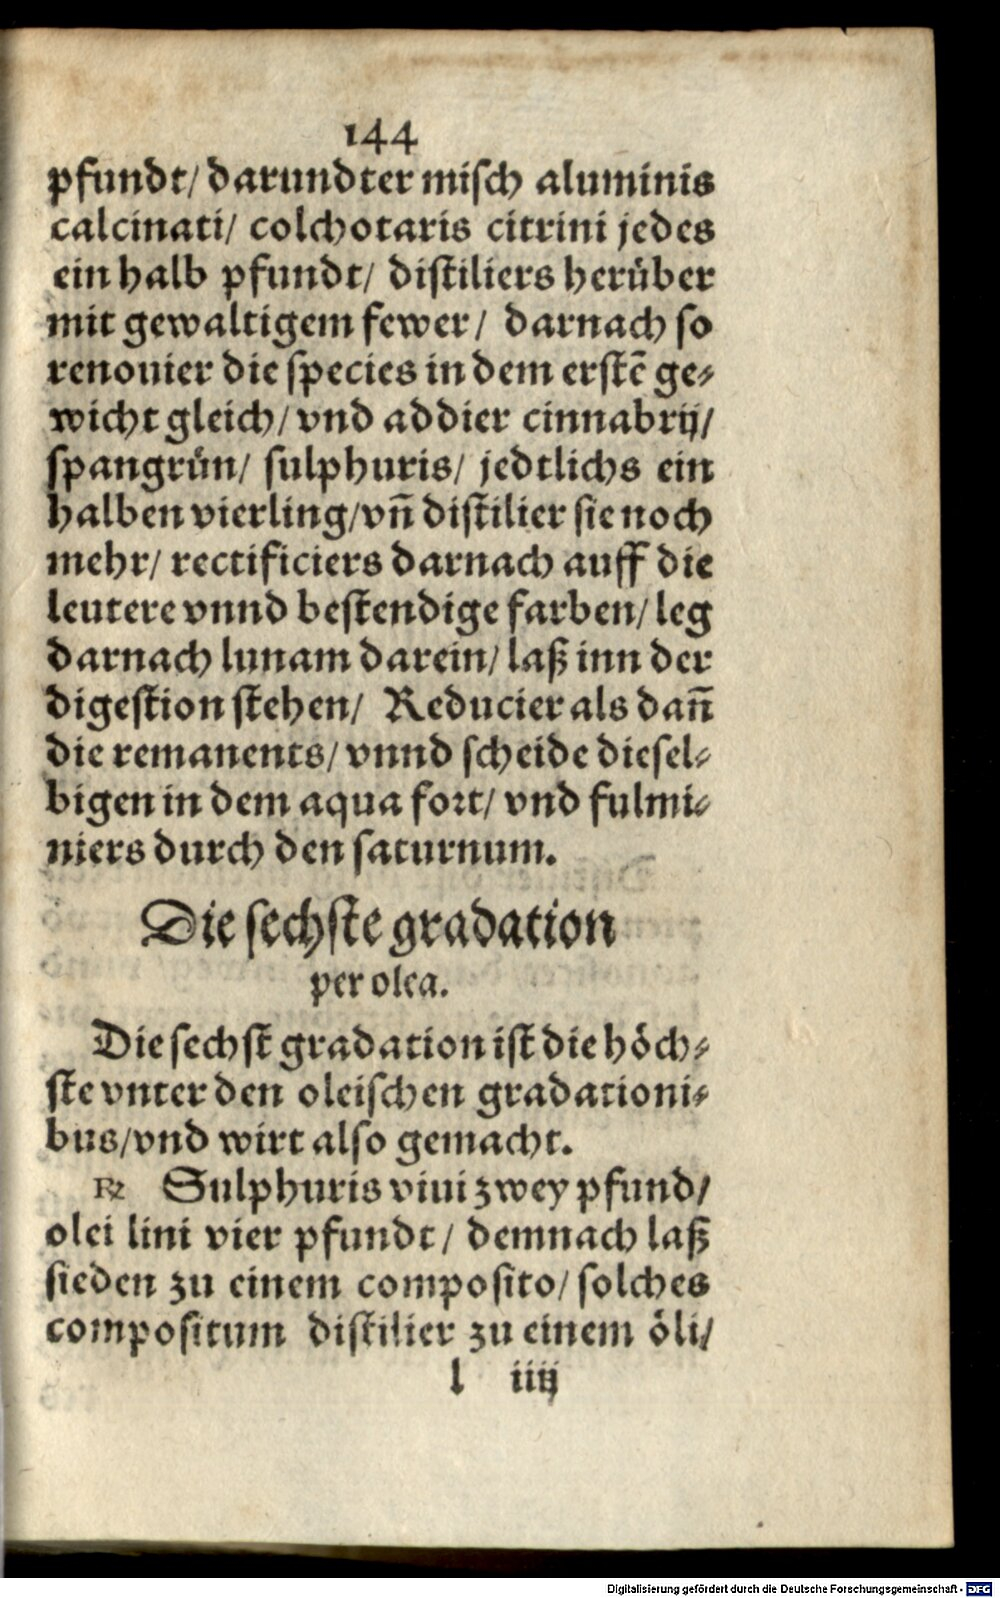 144
pfundt/ darundter misch aluminis
calcinati/ colchotaris citrini jedes
ein halb pfundt/ distiliers herüber
mit gewaltigem fewer/ darnach so
renouier die species in dem erstē ge-
wicht gleich/ vnd addier cinnabrij/
spangrün/ sulphuris/ jedtlichs ein
halben vierling/ vn̄ distilier sie noch
mehr/ rectificiers darnach auff die
leutere vnnd bestendige farben/ leg
darnach lunam darein/ laß inn der
digestion stehen/ Reducier als dan̄
die remanents/ vnnd scheide diesel-
bigen in dem aqua fort/ vnd fulmi-
niers durch den saturnum.
Die sechste gradation
per olea.
Die sechst gradation ist die höch-
ste vnter den oleischen gradationi-
bus/ vnd wirt also gemacht.
℞ Sulphuris viui zwey pfund/
olei lini vier pfundt/ demnach laß
sieden zu einem composito/ solches
compositum distilier zu einem öli/
l iiij
Digitalisierung gefördert durch die Deutsche Forschungsgemeinschaft - DFG